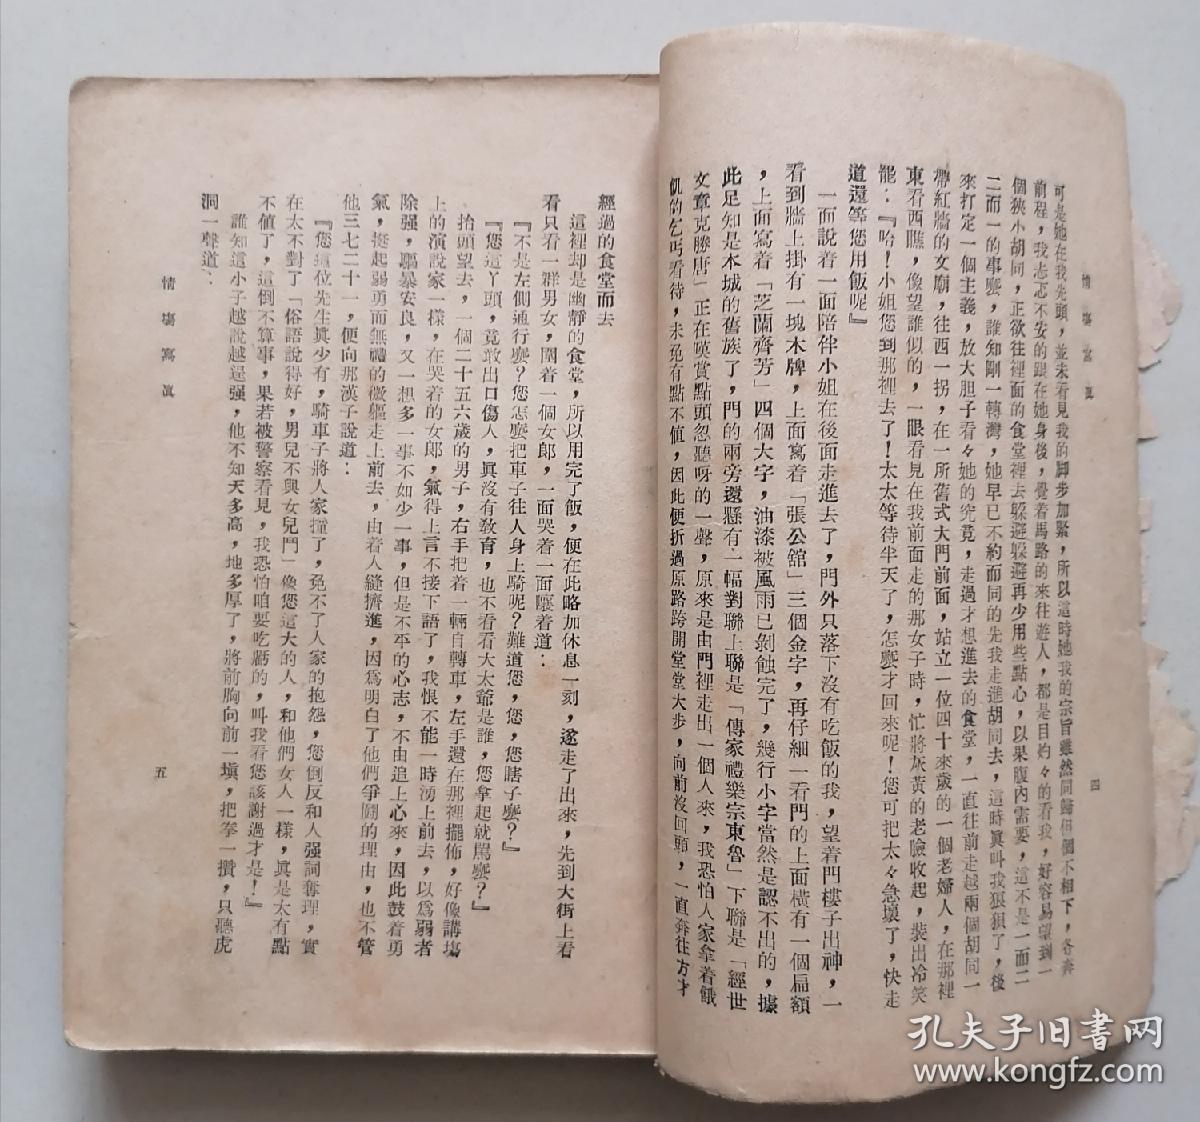 情塲寫眞
四
可是她在我先頭，並未看見我的脚步加緊，所以這時她我的宗旨雖然同歸但個不相下，各奔
前程，我忐忑不安的跟在她身後，覺着馬路的來往遊人，都是目灼々的看我，好容易望到一
個狹小胡同，正欲往裡面的食堂裡去躱避躱避再少用些點心，以果腹內需要，這不是一而二
二而一的事麼，誰知剛一轉灣，她早已不約而同的先我走進胡同去，這時眞叫我狠狠了，後
來打定一個主義，放大胆子看々她的究竟，走過才想進去的食堂，一直往前走越兩個胡同一
帶紅牆的文廟，往西一拐，在一所舊式大門前面，站立一位四十來歲的一個老婦人，在那裡
東看西瞧，像望誰似的，一眼看見在我前面走的那女子時，忙將灰黃的老臉收起，裝出冷笑
罷：『哈！小姐您到那裡去了！太太等待半天了，怎麼才回來呢！您可把太々急壞了，快走
道還等您用飯呢』
一面說着一面陪伴小姐在後面走進去了，門外只落下沒有吃飯的我，望着門樓子出神，一
看到牆上掛有一塊木牌，上面寫着「張公舘」三個金字，再仔細一看門的上面橫有一個扁額
，上面寫着「芝蘭齊芳」四個大字，油漆被風雨已剝蝕完了，幾行小字當然是認不出的，據
此足知是本城的舊族了，門的兩旁還懸有一幅對聯上聯是「傳家禮樂宗東魯」下聯是「經世
文章克勝唐」正在嘆賞點頭忽聽呀的一聲，原來是由門裡走出一個人來，我恐怕人家拿着餓
飢的乞丐看待，未免有點不值，因此便折過原路跨開堂堂大步，向前沒回頭，一直奔往方才
經過的食堂而去
這裡却是幽靜的食堂，所以用完了飯，便在此略加休息一刻，遂走了出來，先到大街上看
看只看一群男女，圍着一個女郎，一面哭着一面嚷着道：
『不是左側通行麼？您怎麼把車子往人身上騎呢？難道您，您，您瞎子麼？』
『您這丫頭，竟敢出口傷人，眞沒有敎育，也不看看大太爺是誰，您拿起就罵麼？』
抬頭望去，一個二十五六歲的男子，右手把着一輛自轉車，左手還在那裡擺佈，好像講塲
上的演說家一樣，在哭着的女郎，氣得上言不接下語了，我恨不能一時湧上前去，以爲弱者
除强，驅暴安良，又一想多一事不如少一事，但是不平的心志，不由追上心來，因此鼓着勇
氣，挺起弱勇而無禮的微軀走上前去，由着人縫擠進，因爲明白了他們爭鬪的理由，也不管
他三七二十一，便向那漢子說道：
『您這位先生眞少有，騎車子將人家撞了，免不了人家的抱怨，您倒反和人强詞奪理，實
在太不對了「俗語說得好，男兒不與女兒鬥」像您這大的人，和他們女人一樣，眞是太有點
不值了，這倒不算事，果若被警察看見，我恐怕咱要吃虧的，叫我看您該謝過才是！』
誰知這小子越說越逞强，他不知天多高，地多厚了，將前胸向前一塡，把拳一攢，只聽虎
洞一聲道：
情塲寫眞
五
孔夫子旧书网
www.kongfz.com